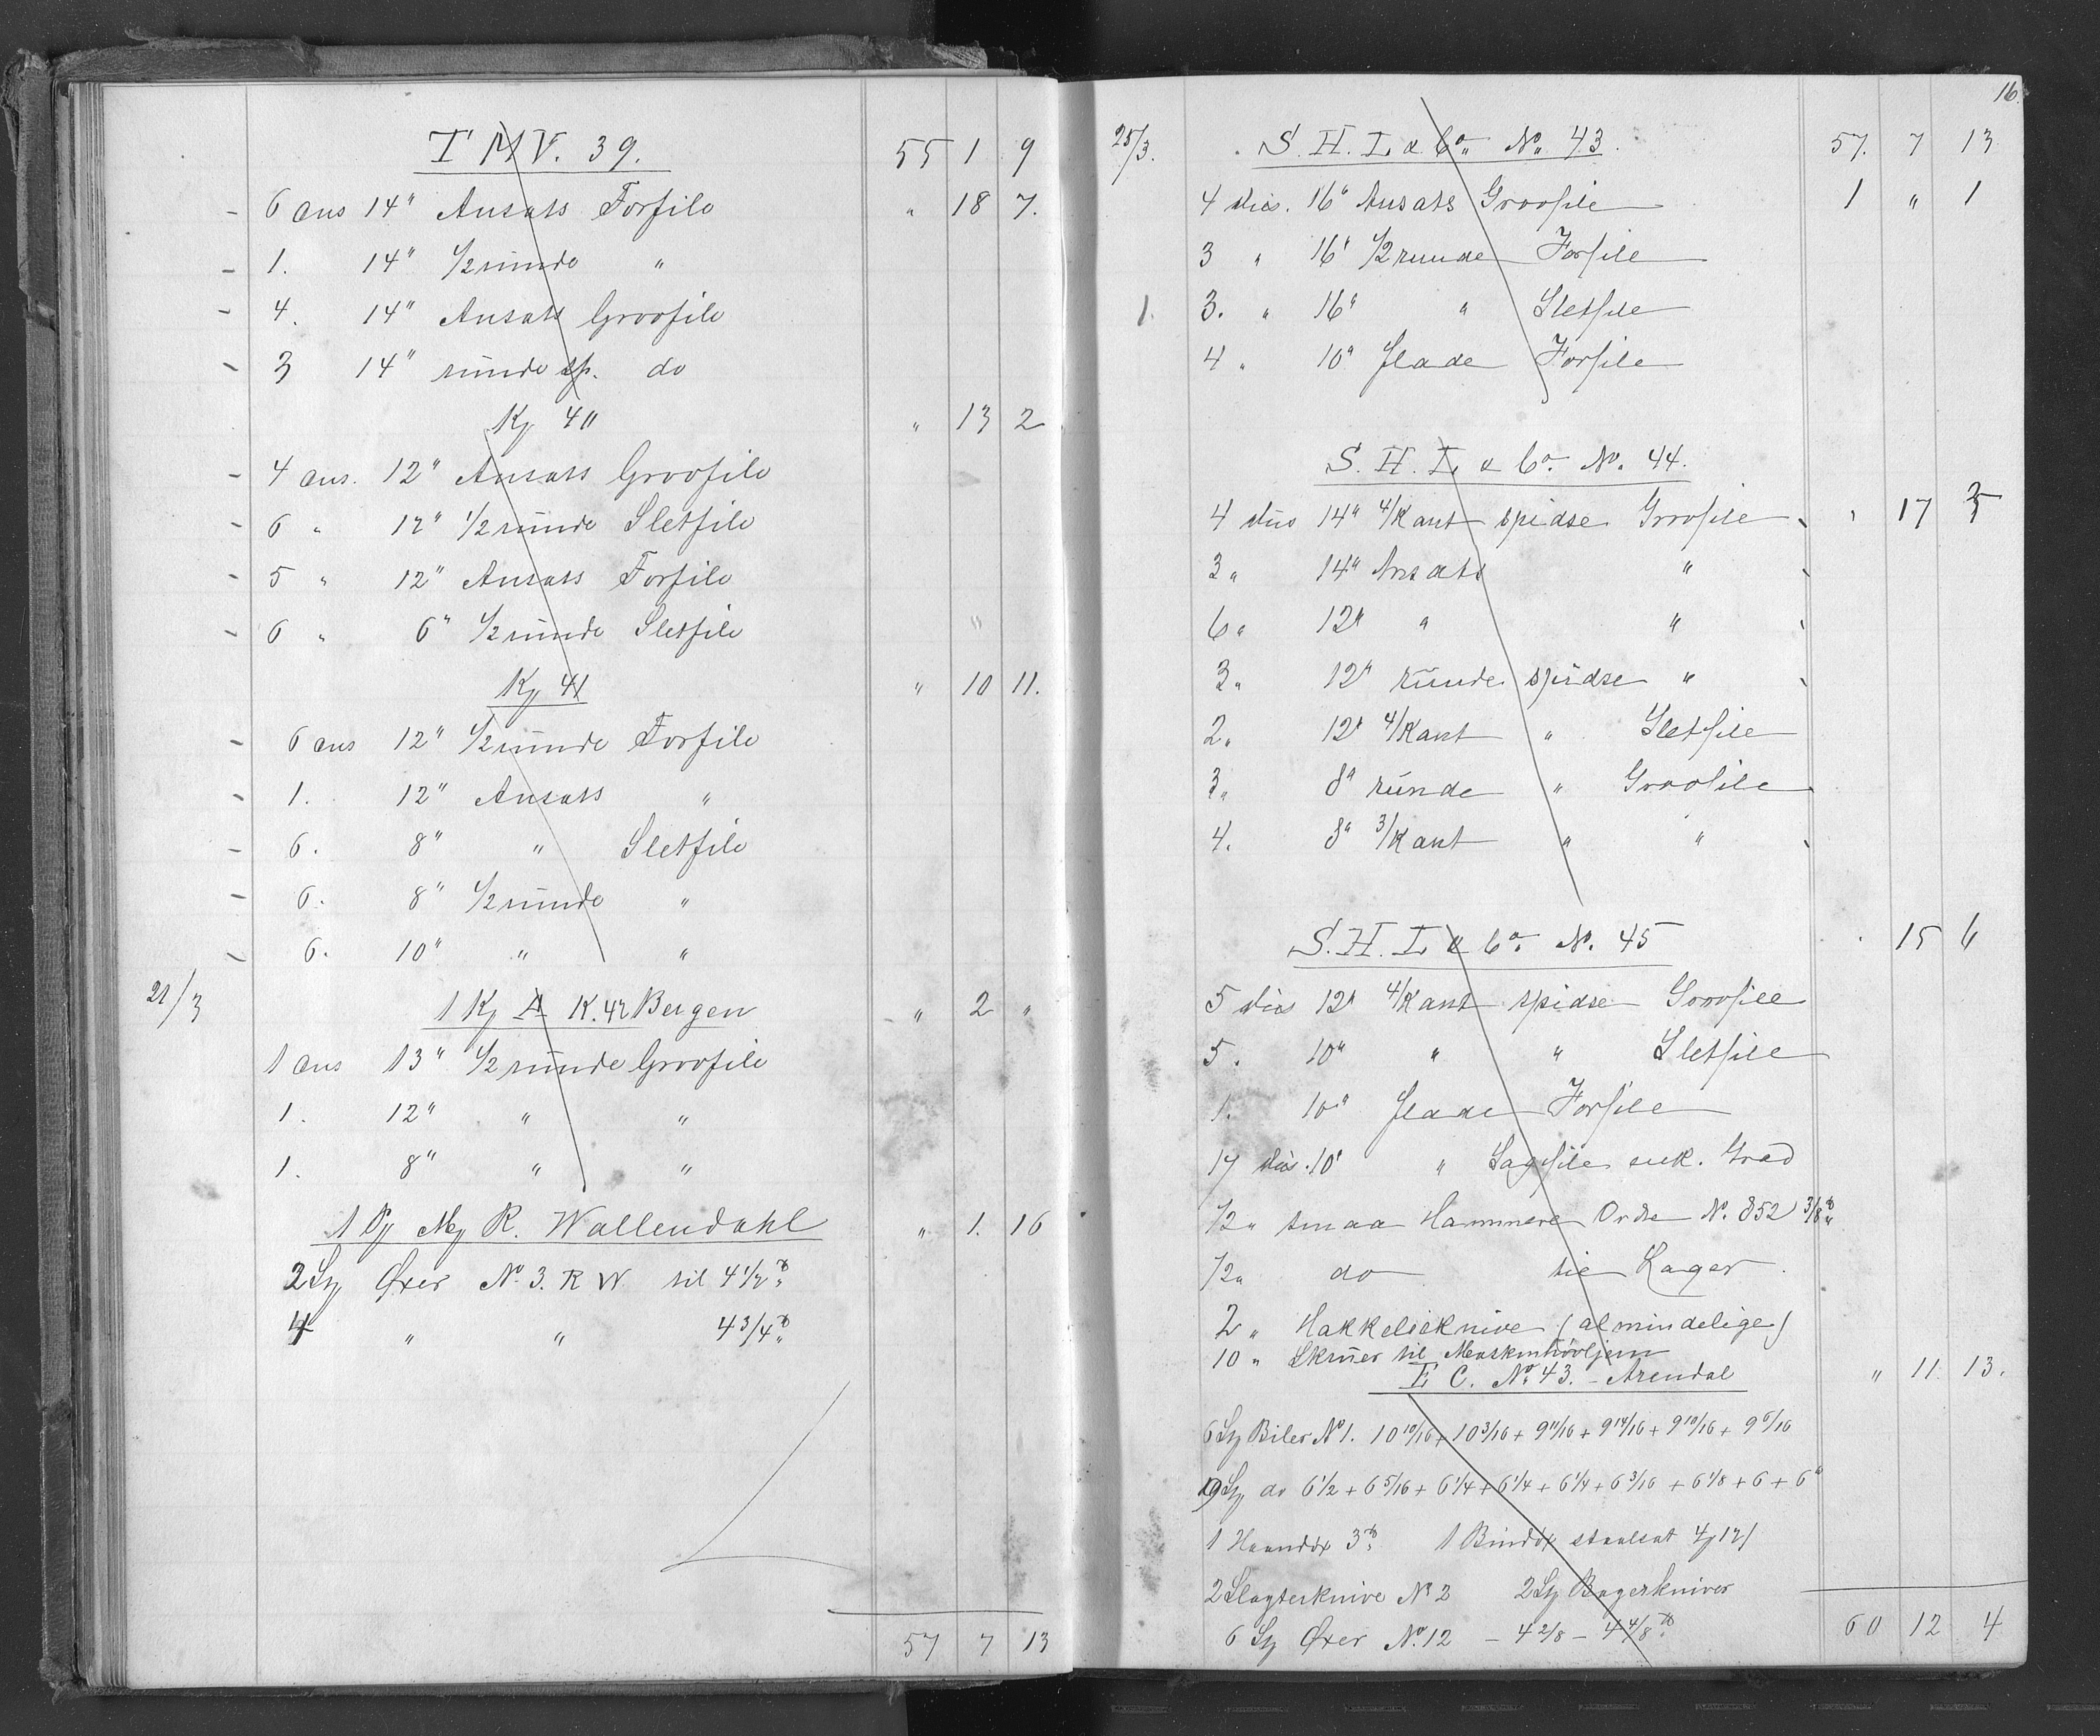 T M V. 39. 55 1 9
- 6 dus 14" Ansats Forfile " 18 7.
- 1. 14" 1/2 runde "
- 4. 14" Ansats Groofile
- 3 14" runde sp. do
Kj 40 " 13 2
- 4 dus. 12" Ansats Groofile
- 6 " 12" 1/2 runde Sletfile
- 5 " 12" Ansats Forfile
- 6 " 6" 1/2 runde Sletfile
Kj 41 " 10 11.
- 6 dus 12" 1/2 runde Forfile
- 1. 12" Ansats "
- 6. 8" " Sletfile
- 6. 8" 1/2 runde "
- 6. 10" " "
21/3 1 Kj K. 42 Bergen " 2 "
1 dus 13" 1/2 runde Groofile
1. 12" " "
1. 8" " "
1 Mg R. Wallendahl " 1. 16
2 Øxer No. 3. R W til 4 1/2
4 " " 4 3/4
57 7 13
16.
25/3. S. H. L & Co. No. 43. 57. 7 13
4 dus. 16" Ansats Groofile 1 " 1
3 " 16" 1/2 runde Forfile
1. 3. " 16" " Sletfile
4 " 10" flade Forfile
S. H. L & Co. No. 44.
4 dus 14" 4/Kant spidse Groofile " 17 3
3 " 14" Ansats "
6 " 12" " "
3 " 12" runde spidse "
2 " 12" 4/Kant " Sletfile
3 " 8" runde " Groofile
4. 8" 3/Kant " "
S. H. L & Co. No. 45 15 6
5 dus 12" 4/Kant spidse Groofile
5. 10" " " Sletfile
1. 10" flade Forfile
17 dus. 10" " Sagfile enk. Grad
1/2 " smaa Hammere Ordre No. 852 3/8
1/2 " do til Lager.
2 " Hakkelseknive (almindelige)
10 " Skruer til Maskinhøvljern
E C. No. 43. - Arendal " 11. 13.
6 Biler No 1. 10 10/16 + 10 3/16 + 9 11/16 + 9 14/16 + 9 10/16 + 9 6/16
9 do 6 1/2 + 6 5/16 + 6 1/4 + 6 1/4 + 6 1/4 + 6 3/16 + 6 1/8 + 6 + 6
1 Haandøx 3 1 Bindøx staalsat
2 Slagterknive No 2 2 Bagerkniver
6 Øxer No. 12 - 4 2/8 - 4 4/8
60 12 4